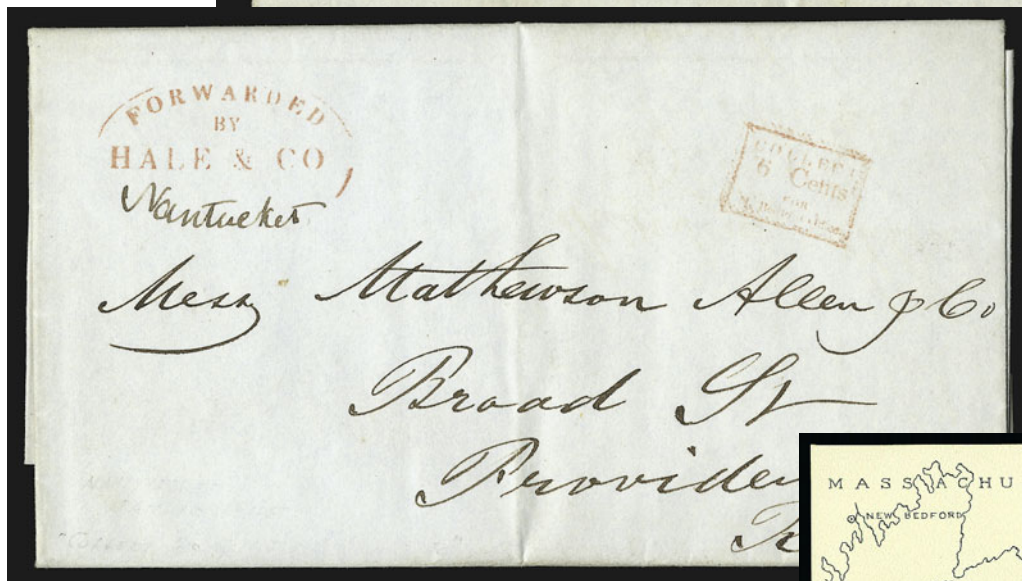 FORWARDED
BY
HALE & CO
Nantucket
COLLECT
6 Cents
FOR
Mess Mathewson Allen & Co
Broad St
Providen
R
MASSACHU
NEW BEDFORD